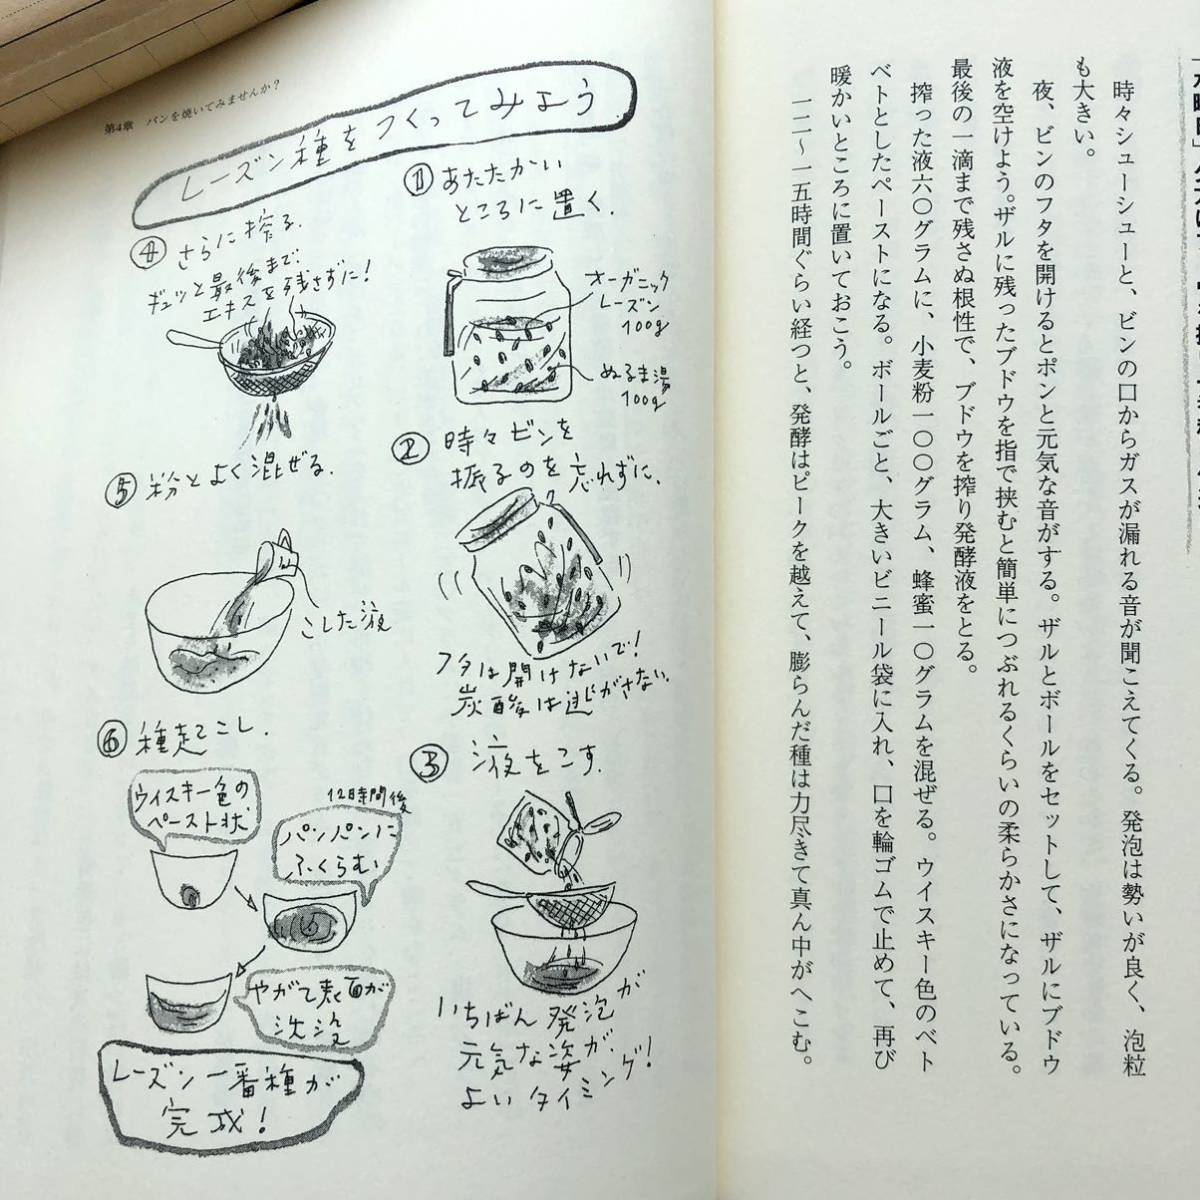 時々シューシューと、ビンの口からガスが漏れる音が聞こえてくる。発泡は勢いが良く、泡粒
も大きい。
夜、ビンのフタを開けるとポンと元気な音がする。ザルとボールをセットして、ザルにブドウ
液を空けよう。ザルに残ったブドウを指で挟むと簡単につぶれるくらいの柔らかさになっている。
最後の一滴まで残さぬ根性で、ブドウを搾り発酵液をとる。
搾った液六〇グラムに、小麦粉一〇〇グラム、蜂蜜一〇グラムを混ぜる。ウイスキー色のベト
ベトとしたペーストになる。ボールごと、大きいビニール袋に入れ、口を輪ゴムで止めて、再び
暖かいところに置いておこう。
一二〜一五時間ぐらい経つと、発酵はピークを越えて、膨らんだ種は力尽きて真ん中がへこむ。
第4章 パンを焼いてみませんか？
レーズン種をつくってみよう
① あたたかい
ところに置く.
オーガニック
レーズン
100g
ぬるま湯
100g
② 時々ビンを
振るのを忘れずに.
フタは開けないで!
炭酸は逃がさない.
③ 液をこす.
いちばん発泡が
元気な姿が、
よいタイミング!
④ さらに搾る.
ギュッと最後まで.
エキスを残さずに!
⑤ 粉とよく混ぜる.
こした液
⑥ 種起こし.
ウイスキー色の
ペースト状
12時間後
パンパンに
ふくらむ
やがて表面が
沈没
レーズン一番種が
完成!